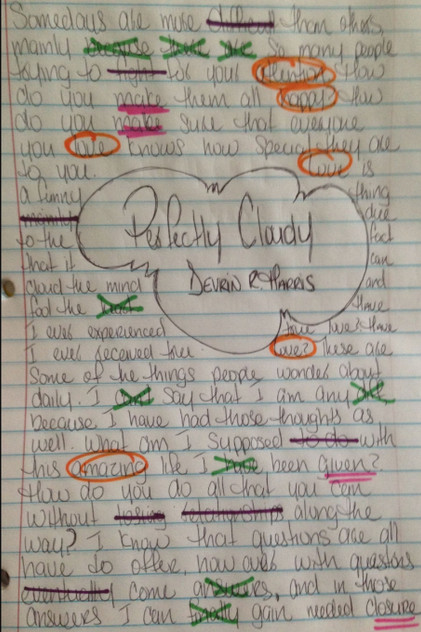 Somedays are more difficult than others,
mainly because there are so many people
trying to fight for your attention. How
do you make them all happy? How
do you make sure that everyone
you love knows how special they are
to you. Love is
a funny thing
mainly due
to the fact
that it can
cloud the mind and
fool the heart. Have
Perfectly Cloudy
Devrin R. Harris
I ever experienced true love? Have
I ever received true love? These are
Some of the things people wonder about
daily. I can't say that I am any
because I have had those thoughts as
well. What am I supposed to do with
this amazing life I have been given?
How do you do all that you can
without losing relationships along the
way? I know that questions are all
I have to offer, however with questions
eventually come answers, and in those
answers I can finally gain needed closure